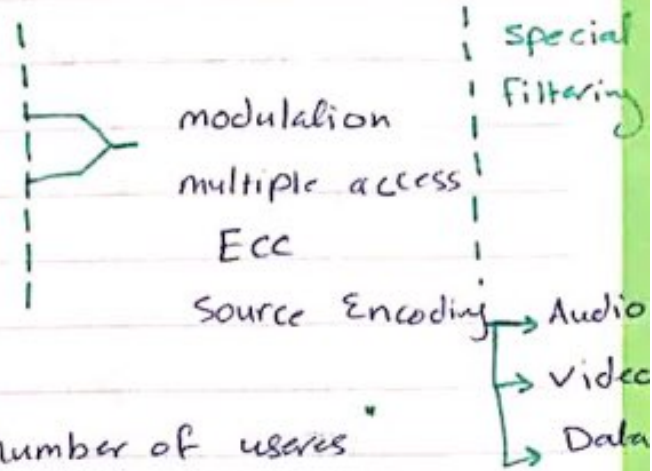 special
filtering
modulation
multiple access
ECC
Source Encoding
Audio
Video
Data
number of useres"